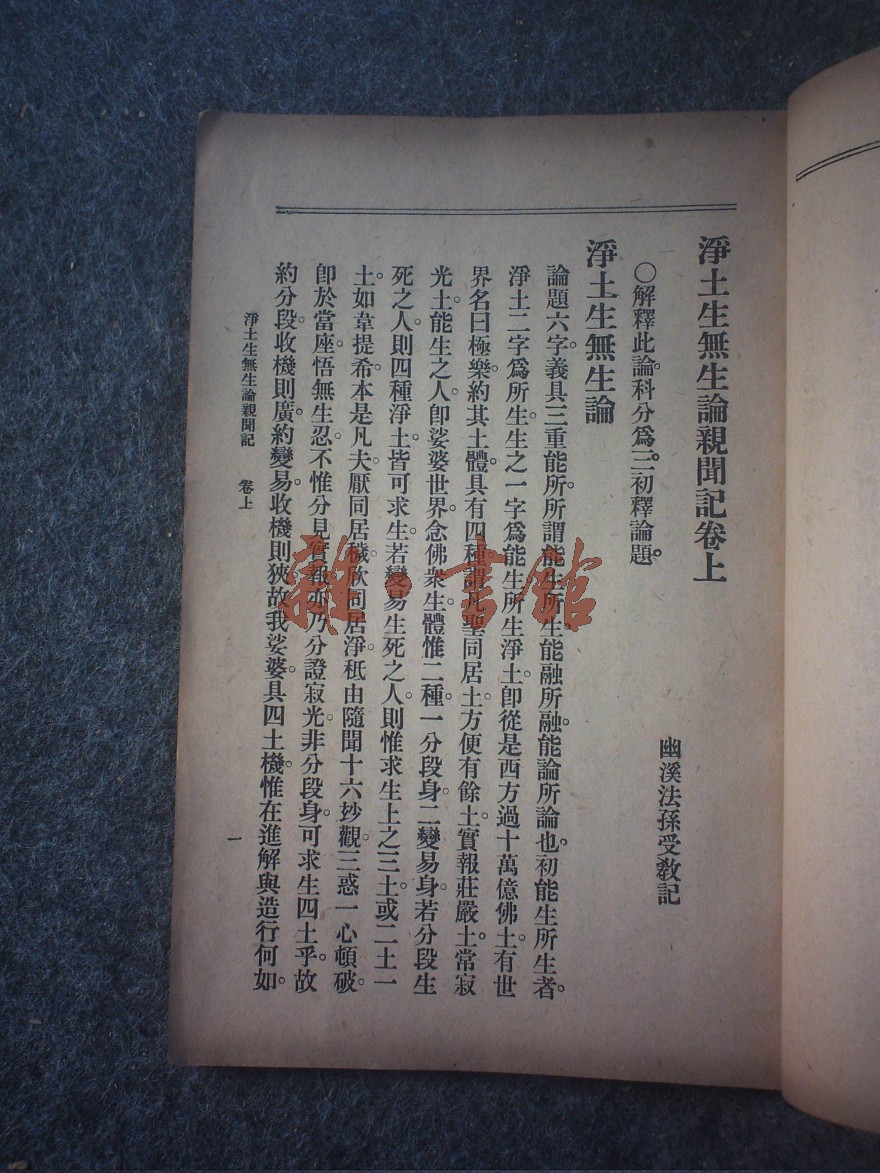 淨土生無生論親聞記卷上
幽溪法孫受敎記
〇解釋此論。科分爲三。初釋論題。
淨土生無生論
論題六字。義具三重能所。所謂能生所生。能融所融。能論所論也。初能生所生者。
淨土二字爲所生。生之一字爲能生。所生淨土。卽從是西方過十萬億佛土。有世
界名曰極樂。約其土體。具有四種。謂凡聖同居土。方便有餘土。實報莊嚴土。常寂
光土。能生之人。卽娑婆世界。念佛衆生。體惟二種。一分段身。二變易身。若分段生
死之人。則四種淨土。皆可求生。若變易生死之人。則惟求生上之三土。或二土一
土。如韋提希。本是凡夫。厭同居穢。欣同居淨。秖由隨聞十六妙觀。三惑一心頓破。
卽於當座。悟無生忍。不惟分見實報。亦乃分證寂光。非分段身。可求生四土乎。故
約分段。收機則廣。約變易。收機則狹。故我娑婆。具四土機。惟在進解與造行何如。
淨土生無生論親聞記 卷上
一
雜 書館